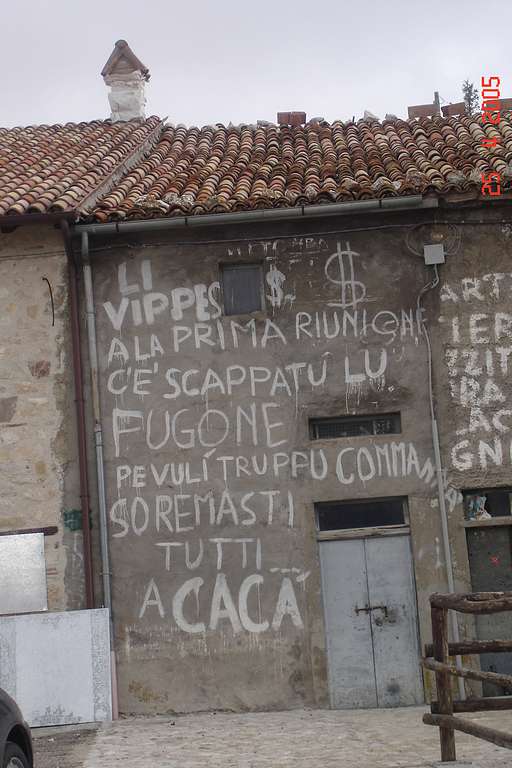 LI
VIPPES $ $
A LA PRIMA RIUNIONE
C'E' SCAPPATU LU
FUGONE
PE VULÍ TRUPPU COMMANNÀ
SO REMASTI
TUTTI...
A CACÀ
25 4 2005